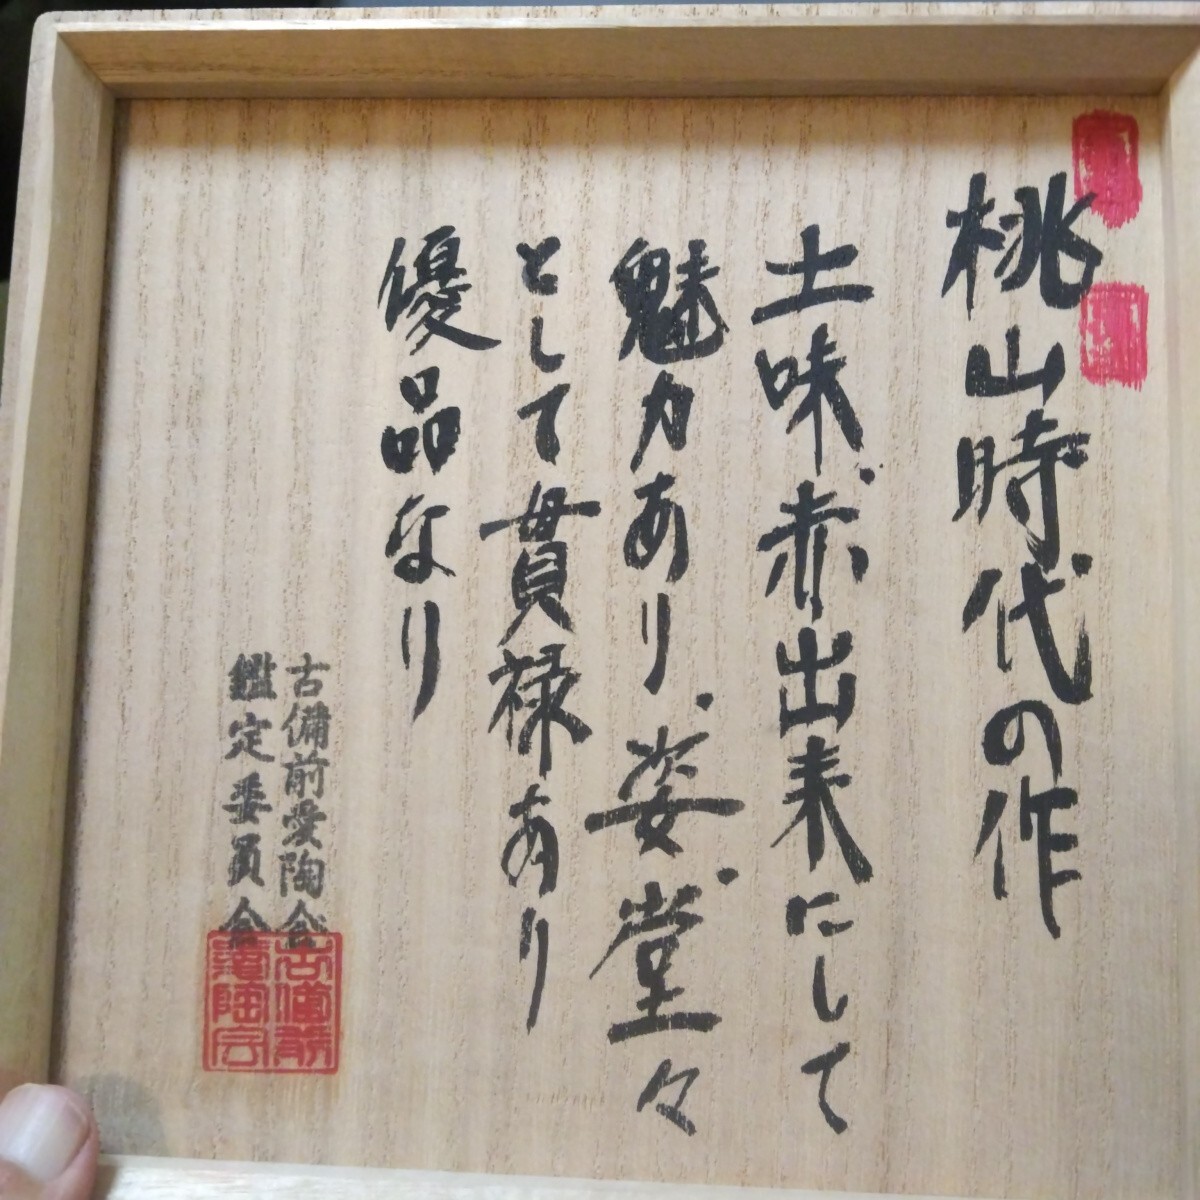 桃山時代の作
土味、赤出来にして
魅力あり、姿、堂々
として貫禄あり
優品なり
古備前愛陶会
鑑定委員会
古備前
愛陶会